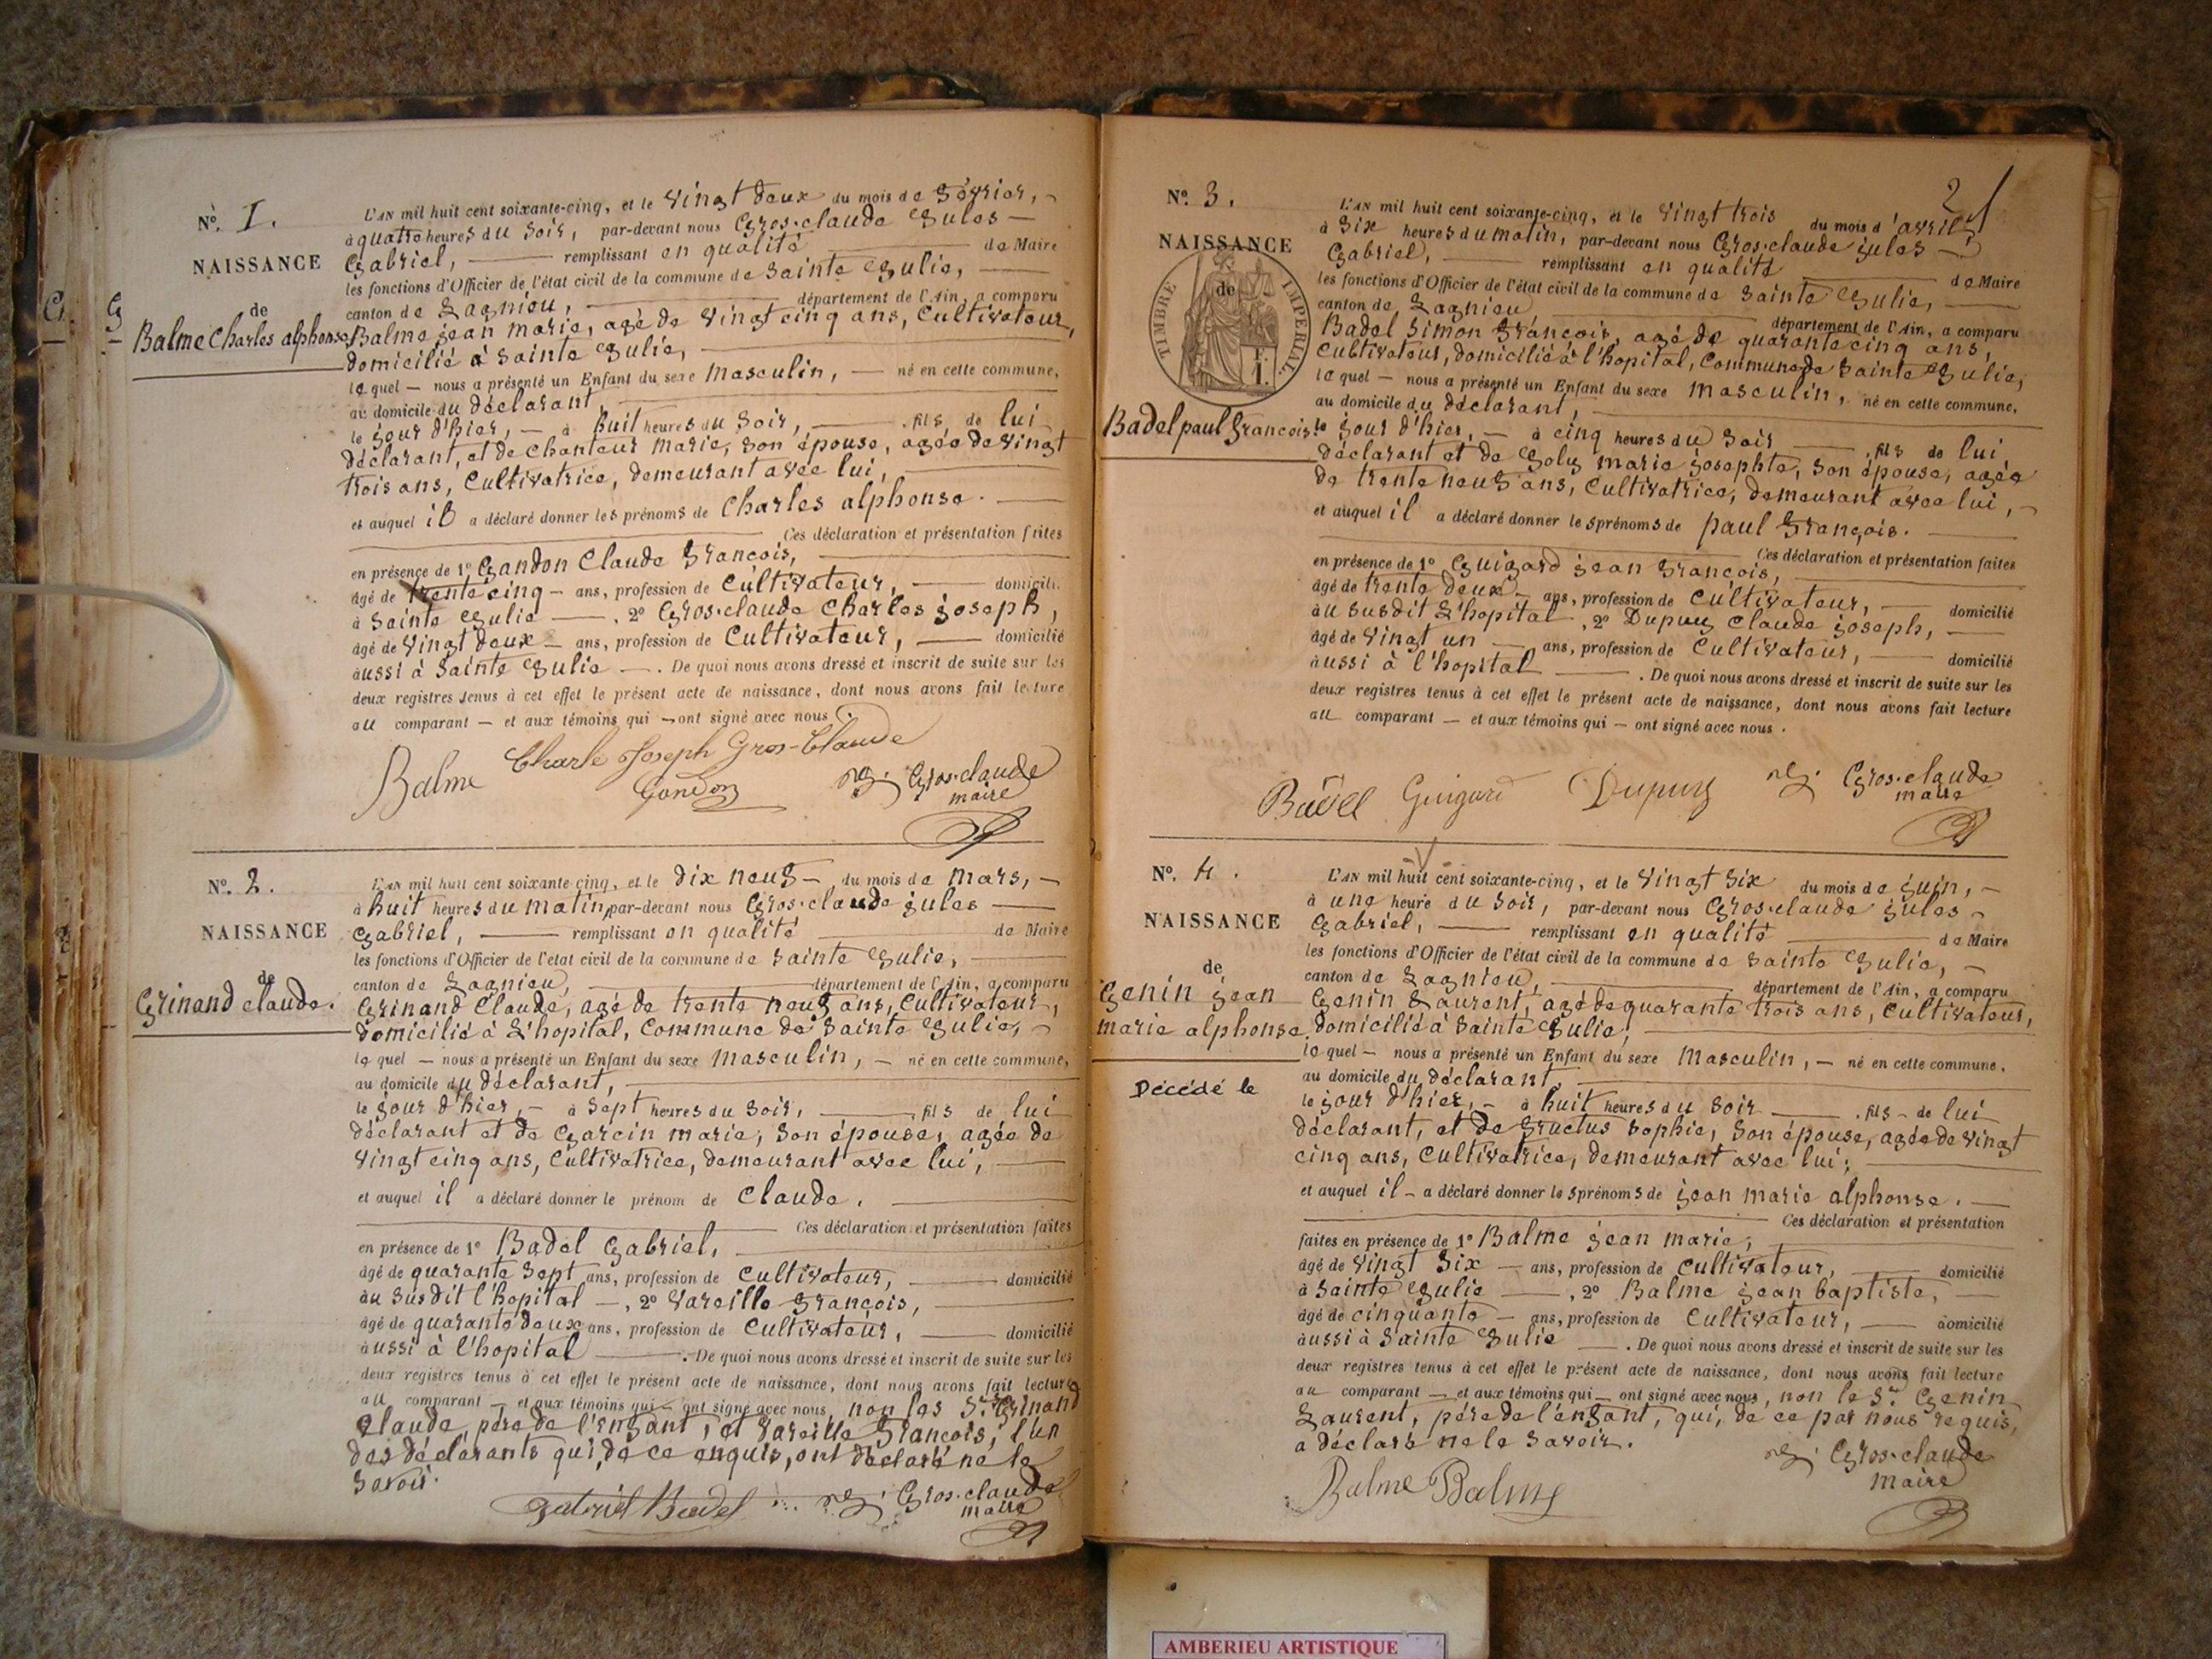 Nº. 1.
NAISSANCE
de
Balme Charles alphonse
L'AN mil huit cent soixante-cinq, et le Vingt deux du mois de Février, -
à quatre heures du Soir, par-devant nous Gros-claude Jules -
Gabriel, - remplissant en qualité - de Maire
les fonctions d'Officier de l'état civil de la commune de Sainte Julie, -
canton de Lagnieu, - département de l'Ain, a comparu
Balme jean marie, agé de Vingt cinq ans, Cultivateur,
domicilié à Sainte Julie, -
lequel - nous a présenté un Enfant du sexe Masculin, - né en cette commune,
au domicile du déclarant, -
le jour d'hier, - à huit heures du Soir, - fils de lui
déclarant, et de Chanteur Marie, Son épouse, agée de Vingt
trois ans, Cultivatrice, demeurant avec lui, -
et auquel il a déclaré donner les prénoms de Charles alphonse. -
- Ces déclaration et présentation faites
en présence de 1º Gandon Claude François, -
âgé de trente cinq - ans, profession de Cultivateur, - domicilié
à Sainte Julie - , 2º Gros-claude Charles joseph,
âgé de Vingt deux - ans, profession de Cultivateur, - domicilié
aussi à Sainte Julie - . De quoi nous avons dressé et inscrit de suite sur les
deux registres tenus à cet effet le présent acte de naissance, dont nous avons fait lecture
au comparant - et aux témoins qui - ont signé avec nous.
Charle Joseph Gros-Claude
Balme Gandon Gros-claude
maire
Nº. 2.
NAISSANCE
de
Grinand claude.
L'AN mil huit cent soixante-cinq, et le dix neuf - du mois de Mars, -
à huit heures du matin, par-devant nous Gros-claude jules -
Gabriel, - remplissant en qualité - de Maire
les fonctions d'Officier de l'état civil de la commune de Sainte Julie, -
canton de Lagnieu, - département de l'Ain, a comparu
Grinand Claude, agé de trente neuf ans, Cultivateur,
domicilié à L'hopital, Commune de Sainte Julie, -
lequel - nous a présenté un Enfant du sexe Masculin, - né en cette commune,
au domicile du déclarant, -
le jour d'hier, - à Sept heures du Soir, - fils de lui
déclarant et de Garcin marie, Son épouse, agée de
Vingt cinq ans, Cultivatrice, demeurant avec lui, -
et auquel il a déclaré donner le prénom de Claude. -
- Ces déclaration et présentation faites
en présence de 1º Badel Gabriel, -
âgé de quarante Sept ans, profession de Cultivateur, - domicilié
au Susdit l'hopital - , 2º Vareille François, -
âgé de quarante deux ans, profession de Cultivateur, - domicilié
aussi à l'hopital - . De quoi nous avons dressé et inscrit de suite sur les
deux registres tenus à cet effet le présent acte de naissance, dont nous avons fait lecture
au comparant - et aux témoins qui - ont signé avec nous, non les Srs Grinand
Claude, père de l'enfant, et Vareille François, l'un
des déclarants qui, de ce enquis, ont déclaré ne le
Savoir.
Gabriel Badel Gros-claude
maire
2
Nº. 3.
NAISSANCE
de
TIMBRE IMPERIAL
1 f.
Badel paul François
L'AN mil huit cent soixante-cinq, et le Vingt trois du mois d'avril,
à Six heures du matin, par-devant nous Gros-claude jules -
Gabriel, - remplissant en qualité - de Maire
les fonctions d'Officier de l'état civil de la commune de Sainte Julie, -
canton de Lagnieu, - département de l'Ain, a comparu
Badel Simon François, agé de quarante cinq ans,
Cultivateur, domicilié à l'hopital, Commune de Sainte Julie,
lequel - nous a présenté un Enfant du sexe Masculin, né en cette commune,
au domicile du déclarant, -
le jour d'hier, - à cinq heures du Soir - , fils de lui
déclarant et de Joly marie josephte, Son épouse, agée
de trente neuf ans, Cultivatrice, demeurant avec lui, -
et auquel il a déclaré donner les prénoms de paul François. -
- Ces déclaration et présentation faites
en présence de 1º Guigard jean François, -
âgé de trente deux - ans, profession de Cultivateur, - domicilié
au Susdit L'hopital , 2º Dupuy Claude joseph, -
âgé de Vingt un - ans, profession de Cultivateur, - domicilié
aussi à l'hopital - . De quoi nous avons dressé et inscrit de suite sur les
deux registres tenus à cet effet le présent acte de naissance, dont nous avons fait lecture
au comparant - et aux témoins qui - ont signé avec nous.
Badel Guigard Dupuy Gros-claude
maire
Nº. 4.
NAISSANCE
de
Genin jean
marie alphonse.
Décédé le
L'AN mil huit cent soixante-cinq, et le Vingt Six du mois de juin, -
à une heure du Soir, par-devant nous Gros-claude jules -
Gabriel, - remplissant en qualité - de Maire
les fonctions d'Officier de l'état civil de la commune de Sainte Julie, -
canton de Lagnieu, - département de l'Ain, a comparu
Genin Laurent, agé de quarante trois ans, Cultivateur,
domicilié à Sainte Julie, -
lequel - nous a présenté un Enfant du sexe Masculin, - né en cette commune,
au domicile du déclarant, -
le jour d'hier, - à huit heures du Soir - , fils - de lui
déclarant, et de Fructus Sophie, Son épouse, agée de Vingt
cinq ans, Cultivatrice, demeurant avec lui, -
et auquel il - a déclaré donner les prénoms de jean marie alphonse. -
- Ces déclaration et présentation
faites en présence de 1º Balme jean marie, -
âgé de Vingt Six - ans, profession de Cultivateur, - domicilié
à Sainte Julie - , 2º Balme jean baptiste, -
âgé de cinquante - ans, profession de Cultivateur, - domicilié
aussi à Sainte Julie - . De quoi nous avons dressé et inscrit de suite sur les
deux registres tenus à cet effet le présent acte de naissance, dont nous avons fait lecture
au comparant - et aux témoins qui - ont signé avec nous, non le Sr Genin
Laurent, père de l'enfant, qui, de ce par nous requis,
a déclaré ne le Savoir.
Balme Balme Gros-claude
maire
AMBERIEU ARTISTIQUE